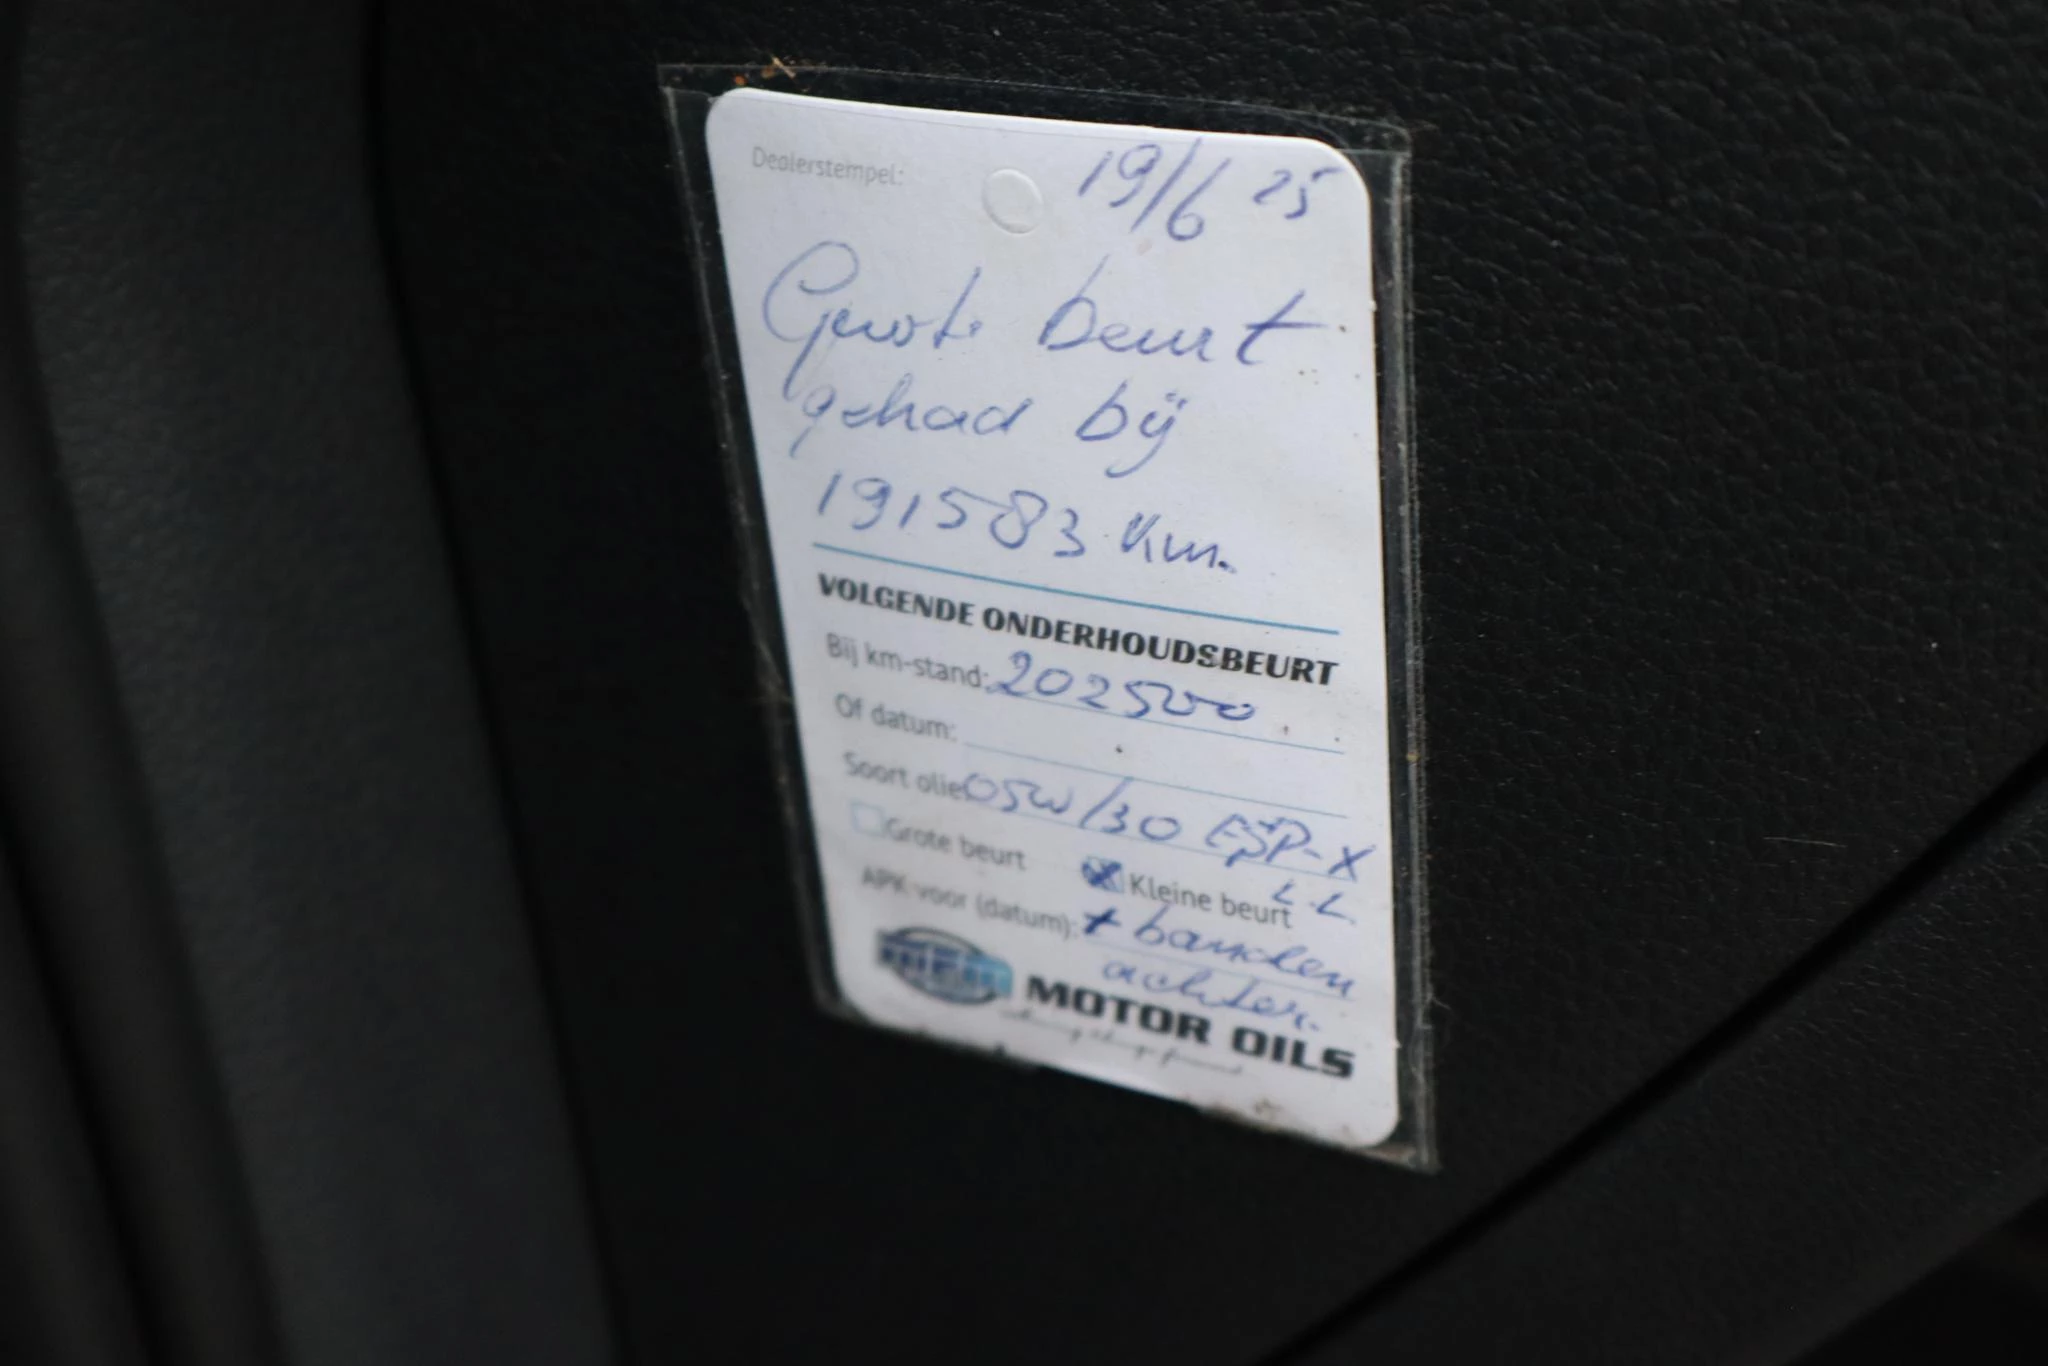 Dealerstempel:
19/6 25
Grote beurt
gehad bij
191583 Km.
VOLGENDE ONDERHOUDSBEURT
Bij km-stand: 202500
Of datum:
Soort olie: 05W/30 ESP-X
L.L.
Grote beurt Kleine beurt
APK voor (datum): + banden
achter.
MOTOR OILS